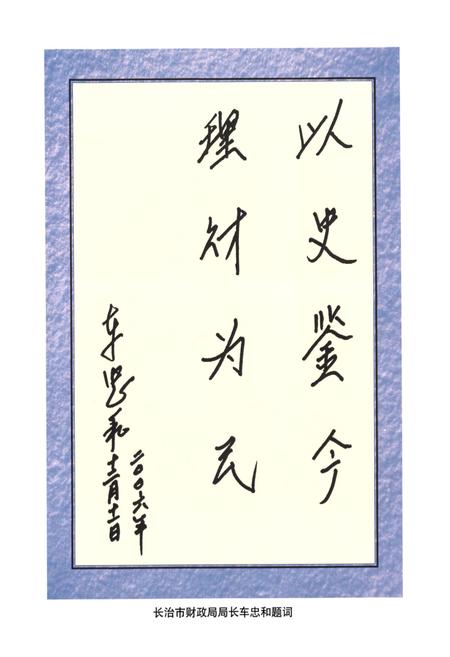 以史鉴今
理财为民
车忠和
二〇〇六年
十二月十一日
长治市财政局局长车忠和题词